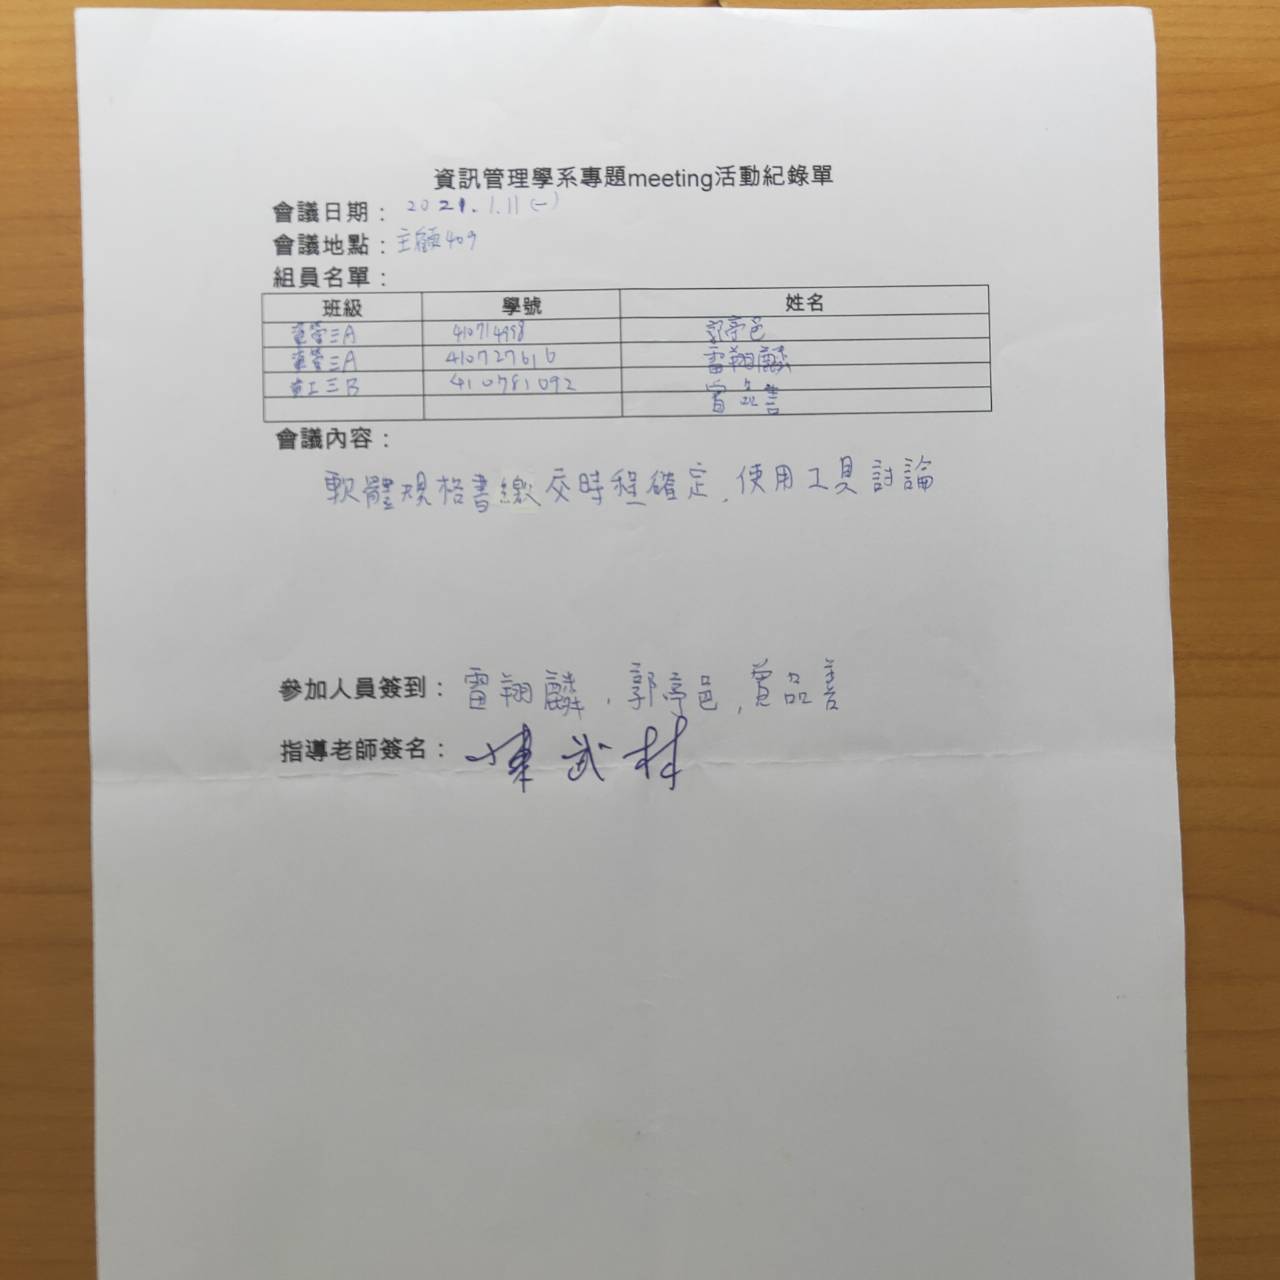 資訊管理學系專題meeting活動紀錄單
會議日期： 2021.1.11(一)
會議地點：主顧409
組員名單：
班級 學號 姓名
資管三A 410714998 郭亭邑
資管三A 410727616 雷翔麟
資工三B 410781092 品善
會議內容：
軟體規格書繳交時程確定,使用工具討論
參加人員簽到：雷翔麟,郭亭邑,品善
指導老師簽名：陳武林